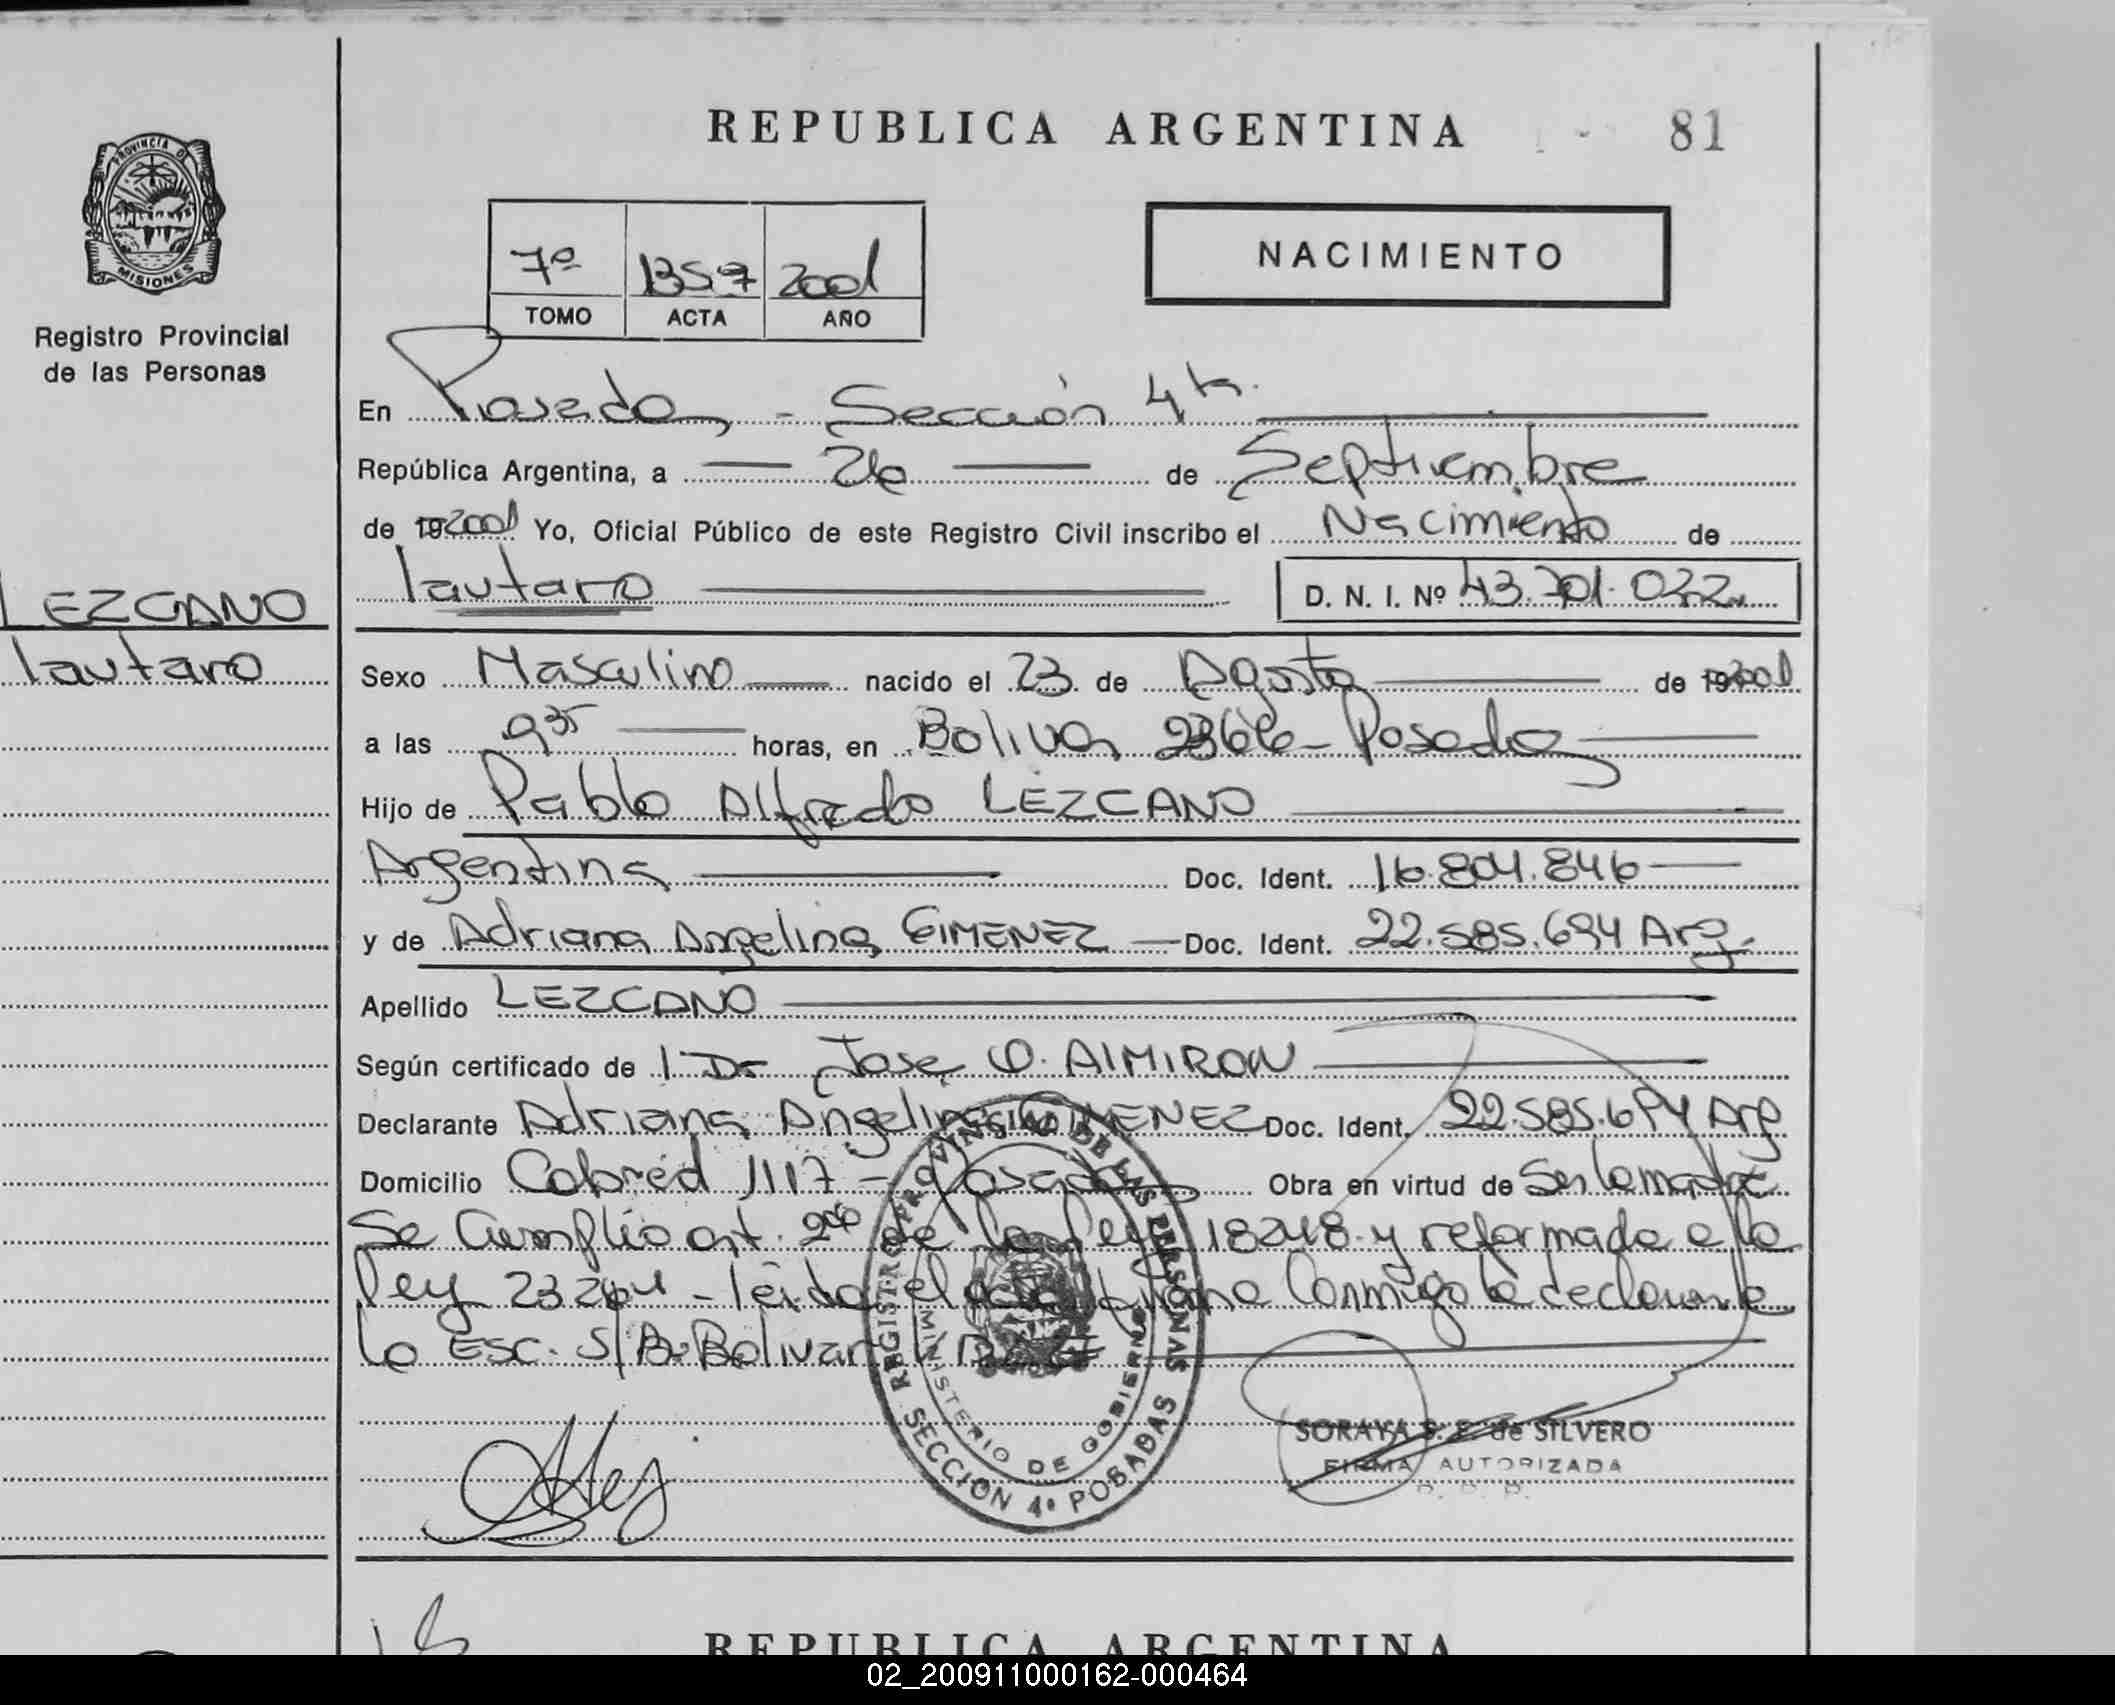 REPUBLICA ARGENTINA
81
PROVINCIA DE
MISIONES
Registro Provincial
de las Personas
7º 1357 2001
TOMO ACTA AÑO
NACIMIENTO
En Posadas - Sección 4ta.
República Argentina, a 26 de Septiembre
de 19 2001 Yo, Oficial Público de este Registro Civil inscribo el Nacimiento de
lautaro D. N. I. Nº 43.701.022
LEZCANO
lautaro
Sexo Masculino nacido el 23 de Agosto de 19 2001
a las 9 35 horas, en Bolivar 2366 - Posadas
Hijo de Pablo Alfredo LEZCANO
Argentina Doc. Ident. 16.804.846
y de Adriana Angelina GIMENEZ Doc. Ident. 22.585.694 Arg.
Apellido LEZCANO
Según certificado de l Dr Jose O. AlMIRON
Declarante Adriana Angelina GIMENEZ Doc. Ident. 22.585.694 Arg
Domicilio Cabred 1117 - Posadas Obra en virtud de Ser la madre
Se Cumplio art. 2do de la ley 18248 y reformada a la
ley 23264 - leida el acta firma Conmigo la declarante
lo Esc. S/B: Bolivar
REGISTRO PROVINCIAL DE LAS PERSONAS
MINISTERIO DE GOBIERNO
SECCION 4º POSADAS
SORAYA S. E. de SILVERO
FIRMA AUTORIZADA
REPUBLICA ARGENTINA
02_200911000162-000464